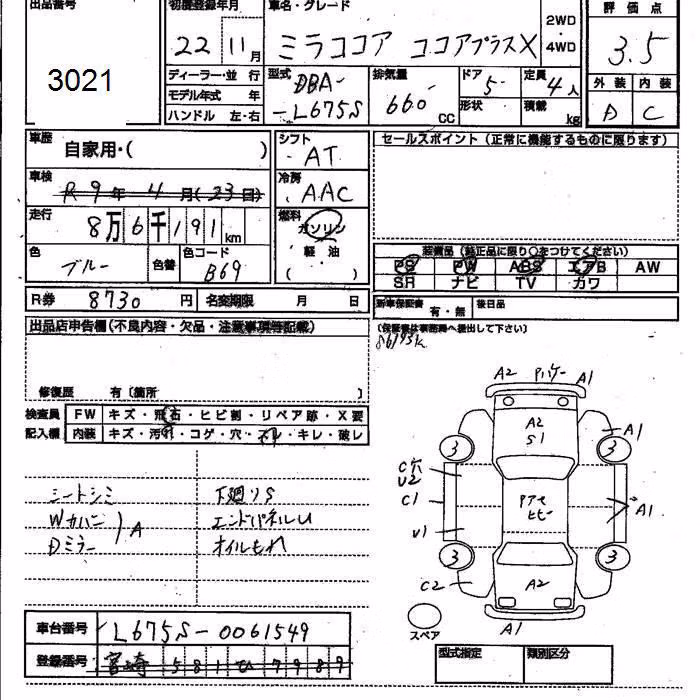 出品番号
3021
初度登録年月
22 11月
車名・グレード
ミラココア ココアプラスX
2WD
・
4WD
評価点
3.5
ディーラー・並行
モデル年式 年
ハンドル 左・右
型式
DBA-
-L675S
排気量
660
CC
ドア
5
形状
定員
4人
積載
kg
外装 内装
D C
車歴
自家用・( )
シフト
AT
セールスポイント (正常に機能するものに限ります)
車検
R9年4月(23日)
冷房
AAC
走行
8万6千191km
燃料
ガソリン
軽油
( )
色
ブルー
色替
色コード
B69
装備品 (純正品に限り○をつけてください)
PS PW ABS エアB AW
SR ナビ TV カワ
R券 8730 円
名変期限 月 日
新車保証書 有・無
後日品
(保証書は事務局へ提出して下さい)
86191K
出品店申告欄(不良内容・欠品・注意事項等記載)
修復歴 有〔箇所 〕
検査員
記入欄
FW キズ・飛石・ヒビ割・リペア跡・X要
内装 キズ・汚れ・コゲ・穴・スレ・キレ・破レ
シートシミ
Wカバー
Dミラー
A
下廻りS
エンドパネルU
オイルもれ
A2
A1
A2
S1
A1
3
3
C穴
U2
C1
U1
A1
3
3
C2
A2
A1
スペア
車台番号 L675S-0061549
登録番号 宮崎 581 ひ 7989
型式指定
類別区分